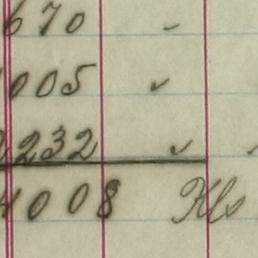 670 -
005 ✓
2232 ✓
4008 Kls